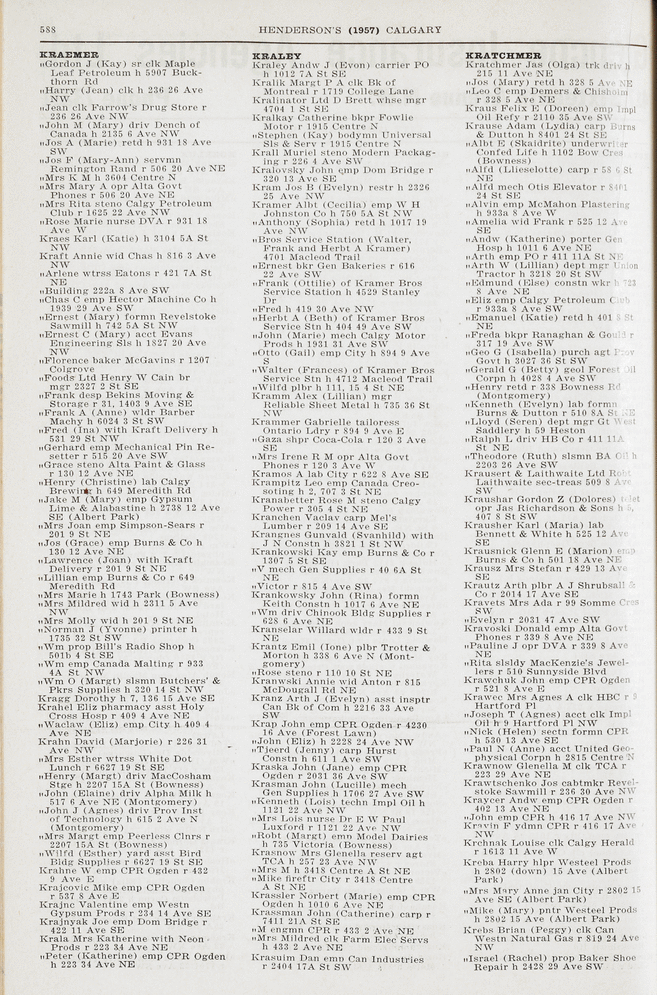 588
HENDERSON'S (1957) CALGARY
KRAEMER
"Gordon J (Kay) sr clk Maple
Leaf Petroleum h 5907 Buck-
thorn Rd
"Harry (Jean) clk h 236 26 Ave
NW
"Jean clk Farrow's Drug Store r
236 26 Ave NW
"John M (Mary) driv Dench of
Canada h 2135 6 Ave NW
"Jos A (Marie) retd h 931 18 Ave
SW
"Jos F (Mary-Ann) servmn
Remington Rand r 506 20 Ave NE
"Mrs K M h 3604 Centre N
"Mrs Mary A opr Alta Govt
Phones r 506 20 Ave NE
"Mrs Rita steno Calgary Petroleum
Club r 1625 22 Ave NW
"Rose Marie nurse DVA r 931 18
Ave W
Kraes Karl (Katie) h 3104 5A St
NW
Kraft Annie wid Chas h 816 3 Ave
NW
"Arlene wtrss Eatons r 421 7A St
NE
"Building 222a 8 Ave SW
"Chas C emp Hector Machine Co h
1939 29 Ave SW
"Ernest (Mary) formn Revelstoke
Sawmill h 742 5A St NW
"Ernest C (Mary) acct Evans
Engineering Sls h 1827 20 Ave
NW
"Florence baker McGavins r 1207
Colgrove
"Foods Ltd Henry W Cain br
mgr 2327 2 St SE
"Frank desp Bekins Moving &
Storage r 31, 1403 9 Ave SE
"Frank A (Anne) wldr Barber
Machy h 6024 3 St SW
"Fred (Ina) with Kraft Delivery h
531 29 St NW
"Gerhard emp Mechanical Pin Re-
setter r 515 20 Ave SW
"Grace steno Alta Paint & Glass
r 130 12 Ave NE
"Henry (Christine) lab Calgy
Brewing h 649 Meredith Rd
"Jake M (Mary) emp Gypsum
Lime & Alabastine h 2738 12 Ave
SE (Albert Park)
"Mrs Joan emp Simpson-Sears r
201 9 St NE
"Jos (Grace) emp Burns & Co h
130 12 Ave NE
"Lawrence (Joan) with Kraft
Delivery r 201 9 St NE
"Lillian emp Burns & Co r 649
Meredith Rd
"Mrs Marie h 1743 Park (Bowness)
"Mrs Mildred wid h 2311 5 Ave
NW
"Mrs Molly wid h 201 9 St NE
"Norman J (Yvonne) printer h
1735 32 St SW
"Wm prop Bill's Radio Shop h
501b 4 St SE
"Wm emp Canada Malting r 933
4A St NW
"Wm O (Margt) slsmn Butchers' &
Pkrs Supplies h 320 14 St NW
Kragg Dorothy h 7, 136 15 Ave SE
Krahel Eliz pharmacy asst Holy
Cross Hosp r 409 4 Ave NE
"Waclaw (Eliz) emp City h 409 4
Ave NE
Krahn David (Marjorie) r 226 31
Ave NW
"Mrs Esther wtrss White Dot
Lunch r 6627 19 St SE
"Henry (Margt) driv MacCosham
Stge h 2207 15A St (Bowness)
"John (Elaine) driv Alpha Milk h
517 6 Ave NE (Montgomery)
"John J (Agnes) driv Prov Inst
of Technology h 615 2 Ave N
(Montgomery)
"Mrs Margt emp Peerless Clnrs r
2207 15A St (Bowness)
"Wilfd (Esther) yard asst Bird
Bldg Supplies r 6627 19 St SE
Krahne W emp CPR Ogden r 432
9 Ave E
Krajcovic Mike emp CPR Ogden
r 537 8 Ave E
Krajnc Valentine emp Westn
Gypsum Prods r 234 14 Ave SE
Krajnyak Joe emp Dom Bridge r
422 11 Ave SE
Krala Mrs Katherine with Neon
Prods r 223 34 Ave NE
"Peter (Katherine) emp CPR Ogden
h 223 34 Ave NE
KRALEY
Kraley Andw J (Evon) carrier PO
h 1012 7A St SE
Kralik Margt P A clk Bk of
Montreal r 1719 College Lane
Kralinator Ltd D Brett whse mgr
4704 1 St SE
Kralkay Catherine bkpr Fowlie
Motor r 1915 Centre N
"Stephen (Kay) bodymn Universal
Sls & Serv r 1915 Centre N
Krall Muriel steno Modern Packag-
ing r 226 4 Ave SW
Kralovsky John emp Dom Bridge r
320 13 Ave SE
Kram Jos B (Evelyn) restr h 2326
25 Ave NW
Kramer Albt (Cecilia) emp W H
Johnston Co h 750 5A St NW
"Anthony (Sophia) retd h 1017 19
Ave NW
"Bros Service Station (Walter,
Frank and Herbt A Kramer)
4701 Macleod Trail
"Ernest bkr Gen Bakeries r 616
22 Ave SW
"Frank (Ottilie) of Kramer Bros
Service Station h 4529 Stanley
Dr
"Fred h 419 30 Ave NW
"Herbt A (Beth) of Kramer Bros
Service Stn h 404 49 Ave SW
"John (Marie) mech Calgy Motor
Prods h 1931 31 Ave SW
"Otto (Gail) emp City h 894 9 Ave
S
"Walter (Frances) of Kramer Bros
Service Stn h 4712 Macleod Trail
"Wilfd plbr h 111, 15 4 St NE
Kramm Alex (Lillian) mgr
Reliable Sheet Metal h 735 36 St
NW
Krammer Gabrielle tailoress
Ontario Ldry r 894 9 Ave E
"Gaza shpr Coca-Cola r 120 3 Ave
SE
"Mrs Irene R M opr Alta Govt
Phones r 120 3 Ave W
Kramos A lab City r 622 8 Ave SE
Krampitz Leo emp Canada Creo-
soting h 2, 707 3 St NE
Kranabetter Rose M steno Calgy
Power r 305 4 St NE
Kranchen Vaclav carp Mel's
Lumber r 209 14 Ave SE
Krangnes Gunvald (Svanhild) with
J N Constn h 3821 1 St NW
Krankowski Kay emp Burns & Co r
1307 5 St SE
"V mech Gen Supplies r 40 6A St
NE
"Victor r 815 4 Ave SW
Krankowsky John (Rina) formn
Keith Constn h 1017 6 Ave NE
"Wm driv Chinook Bldg Supplies r
628 6 Ave NE
Kranselar Willard wldr r 433 9 St
NE
Krantz Emil (Ione) plbr Trotter &
Morton h 338 6 Ave N (Mont-
gomery)
"Rose steno r 110 10 St NE
Kranwski Annie wid Anton r 815
McDougall Rd NE
Kranz Arth J (Evelyn) asst insptr
Can Bk of Com h 2216 33 Ave
SW
Krap John emp CPR Ogden r 4230
16 Ave (Forest Lawn)
"John (Eliz) h 2228 24 Ave NW
"Tjeerd (Jenny) carp Hurst
Constn h 611 1 Ave SW
Kraska John (Jane) emp CPR
Ogden r 2031 36 Ave SW
Krasman John (Lucille) mech
Gen Supplies h 1706 27 Ave SW
"Kenneth (Lois) techn Impl Oil h
1121 22 Ave NW
"Mrs Lois nurse Dr E W Paul
Luxford r 1121 22 Ave NW
"Robt (Margt) emn Model Dairies
h 735 Victoria (Bowness)
Krasnow Mrs Glenella reserv agt
TCA h 257 23 Ave NW
"Mrs M h 3418 Centre A St NE
"Mike fireftr City r 3418 Centre
A St NE
Krassler Norbert (Marie) emp CPR
Ogden h 1010 6 Ave NE
Krassman John (Catherine) carp r
7411 21A St SE
"M engmn CPR r 433 2 Ave NE
"Mrs Mildred clk Farm Elec Servs
h 433 2 Ave NE
Krasuim Dan emp Can Industries
r 2404 17A St SW
KRATCHMER
Kratchmer Jas (Olga) trk driv h
215 11 Ave NE
"Jos (Mary) retd h 328 5 Ave NE
"Leo C emp Demers & Chisholm
r 328 5 Ave NE
Kraus Felix E (Doreen) emp Impl
Oil Refy r 2110 35 Ave SW
Krause Adam (Lydia) carp Burns
& Dutton h 8401 24 St SE
"Albt E (Skaidrite) underwriter
Confed Life h 1102 Bow Cres
(Bowness)
"Alfd (Llieselotte) carp r 58 6 St
NE
"Alfd mech Otis Elevator r 8401
24 St SE
"Alvin emp McMahon Plastering
h 933a 8 Ave W
"Amelia wid Frank r 525 12 Ave
SE
"Andw (Katherine) porter Gen
Hosp h 1011 6 Ave NE
"Arth emp PO r 411 11A St NE
"Arth W (Lillian) dept mgr Union
Tractor h 3218 20 St SW
"Edmund (Else) constn wkr h 723
8 Ave NE
"Eliz emp Calgy Petroleum Club
r 933a 8 Ave SW
"Emanuel (Katie) retd h 401 8 St
NE
"Freda bkpr Ranaghan & Gould r
317 19 Ave SW
"Geo G (Isabella) purch agt Prov
Govt h 3027 36 St SW
"Gerald G (Betty) geol Forest Oil
Corpn h 4028 4 Ave SW
"Henry retd r 338 Bowness Rd
(Montgomery)
"Kenneth (Evelyn) lab formn
Burns & Dutton r 510 8A St NE
"Lloyd (Seren) dept mgr Gt West
Saddlery h 59 Heston
"Ralph L driv HB Co r 411 11A
St NE
"Theodore (Ruth) slsmn BA Oil h
2203 26 Ave SW
Krausert & Laithwaite Ltd Robt
Laithwaite sec-treas 509 8 Ave
SW
Kraushar Gordon Z (Dolores) telet
opr Jas Richardson & Sons h 5,
407 8 St SW
Krausher Karl (Maria) lab
Bennett & White h 525 12 Ave
SE
Krausnick Glenn E (Marion) emp
Burns & Co h 501 18 Ave NE
Krausz Mrs Stefan r 429 13 Ave
SE
Krautz Arth plbr A J Shrubsall &
Co r 2014 17 Ave SE
Kravets Mrs Ada r 99 Somme Cres
SW
"Evelyn r 2031 47 Ave SW
Kravoski Donald emp Alta Govt
Phones r 339 8 Ave NE
"Pauline J opr DVA r 339 8 Ave
NE
"Rita slsldy MacKenzie's Jewel-
lers r 510 Sunnyside Blvd
Krawchuk John emp CPR Ogden
r 521 8 Ave E
Krawec Mrs Agnes A clk HBC r 9
Hartford Pl
"Joseph T (Agnes) acct clk Impl
Oil h 9 Hartford Pl NW
"Nick (Helen) sectn formn CPR
h 530 13 Ave SE
"Paul N (Anne) acct United Geo-
physical Corpn h 2815 Centre N
Krawnow Glenella M clk TCA r
223 29 Ave NE
Krawtschenko Jos cabtmkr Revel-
stoke Sawmill r 236 30 Ave NW
Kraycer Andw emp CPR Ogden r
402 13 Ave NE
"John emp CPR h 416 17 Ave NW
Kravin F ydmn CPR r 416 17 Ave
NW
Krchnak Louise clk Calgy Herald
r 1613 11 Ave W
Kreba Harry hlpr Westeel Prods
h 2802 (down) 15 Ave (Albert
Park)
"Mrs Mary Anne jan City r 2802 15
Ave SE (Albert Park)
"Mike (Mary) pntr Westeel Prods
h 2802 15 Ave (Albert Park)
Krebs Brian (Peggy) clk Can
Westn Natural Gas r 819 24 Ave
NW
"Israel (Rachel) prop Baker Shoe
Repair h 2428 29 Ave SW